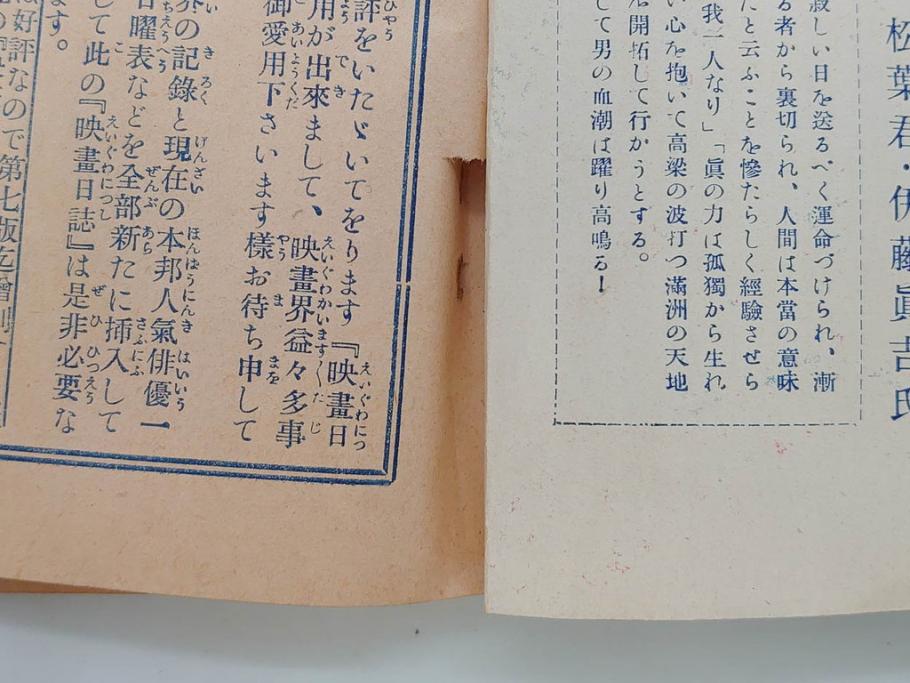 松葉君・伊藤眞吉氏
寂しい日を送るべく運命づけられ、漸
る者から裏切られ、人間は本當の意味
たと云ふことを慘たらしく經驗させら
我一人なり」「眞の力は孤獨から生れ
い心を抱いて高梁の波打つ滿洲の天地
開拓して行かうとする。
して男の血潮は躍り高鳴る！
評をいたゞいてをります『映畫日
用が出來まして、映畫界益々多事
御愛用下さいます樣お待ち申して
界の記錄と現在の本邦人氣俳優一
日曜表などを全部新たに挿入して
して此の『映畫日誌』は是非必要な
ます。
好評なので第七版